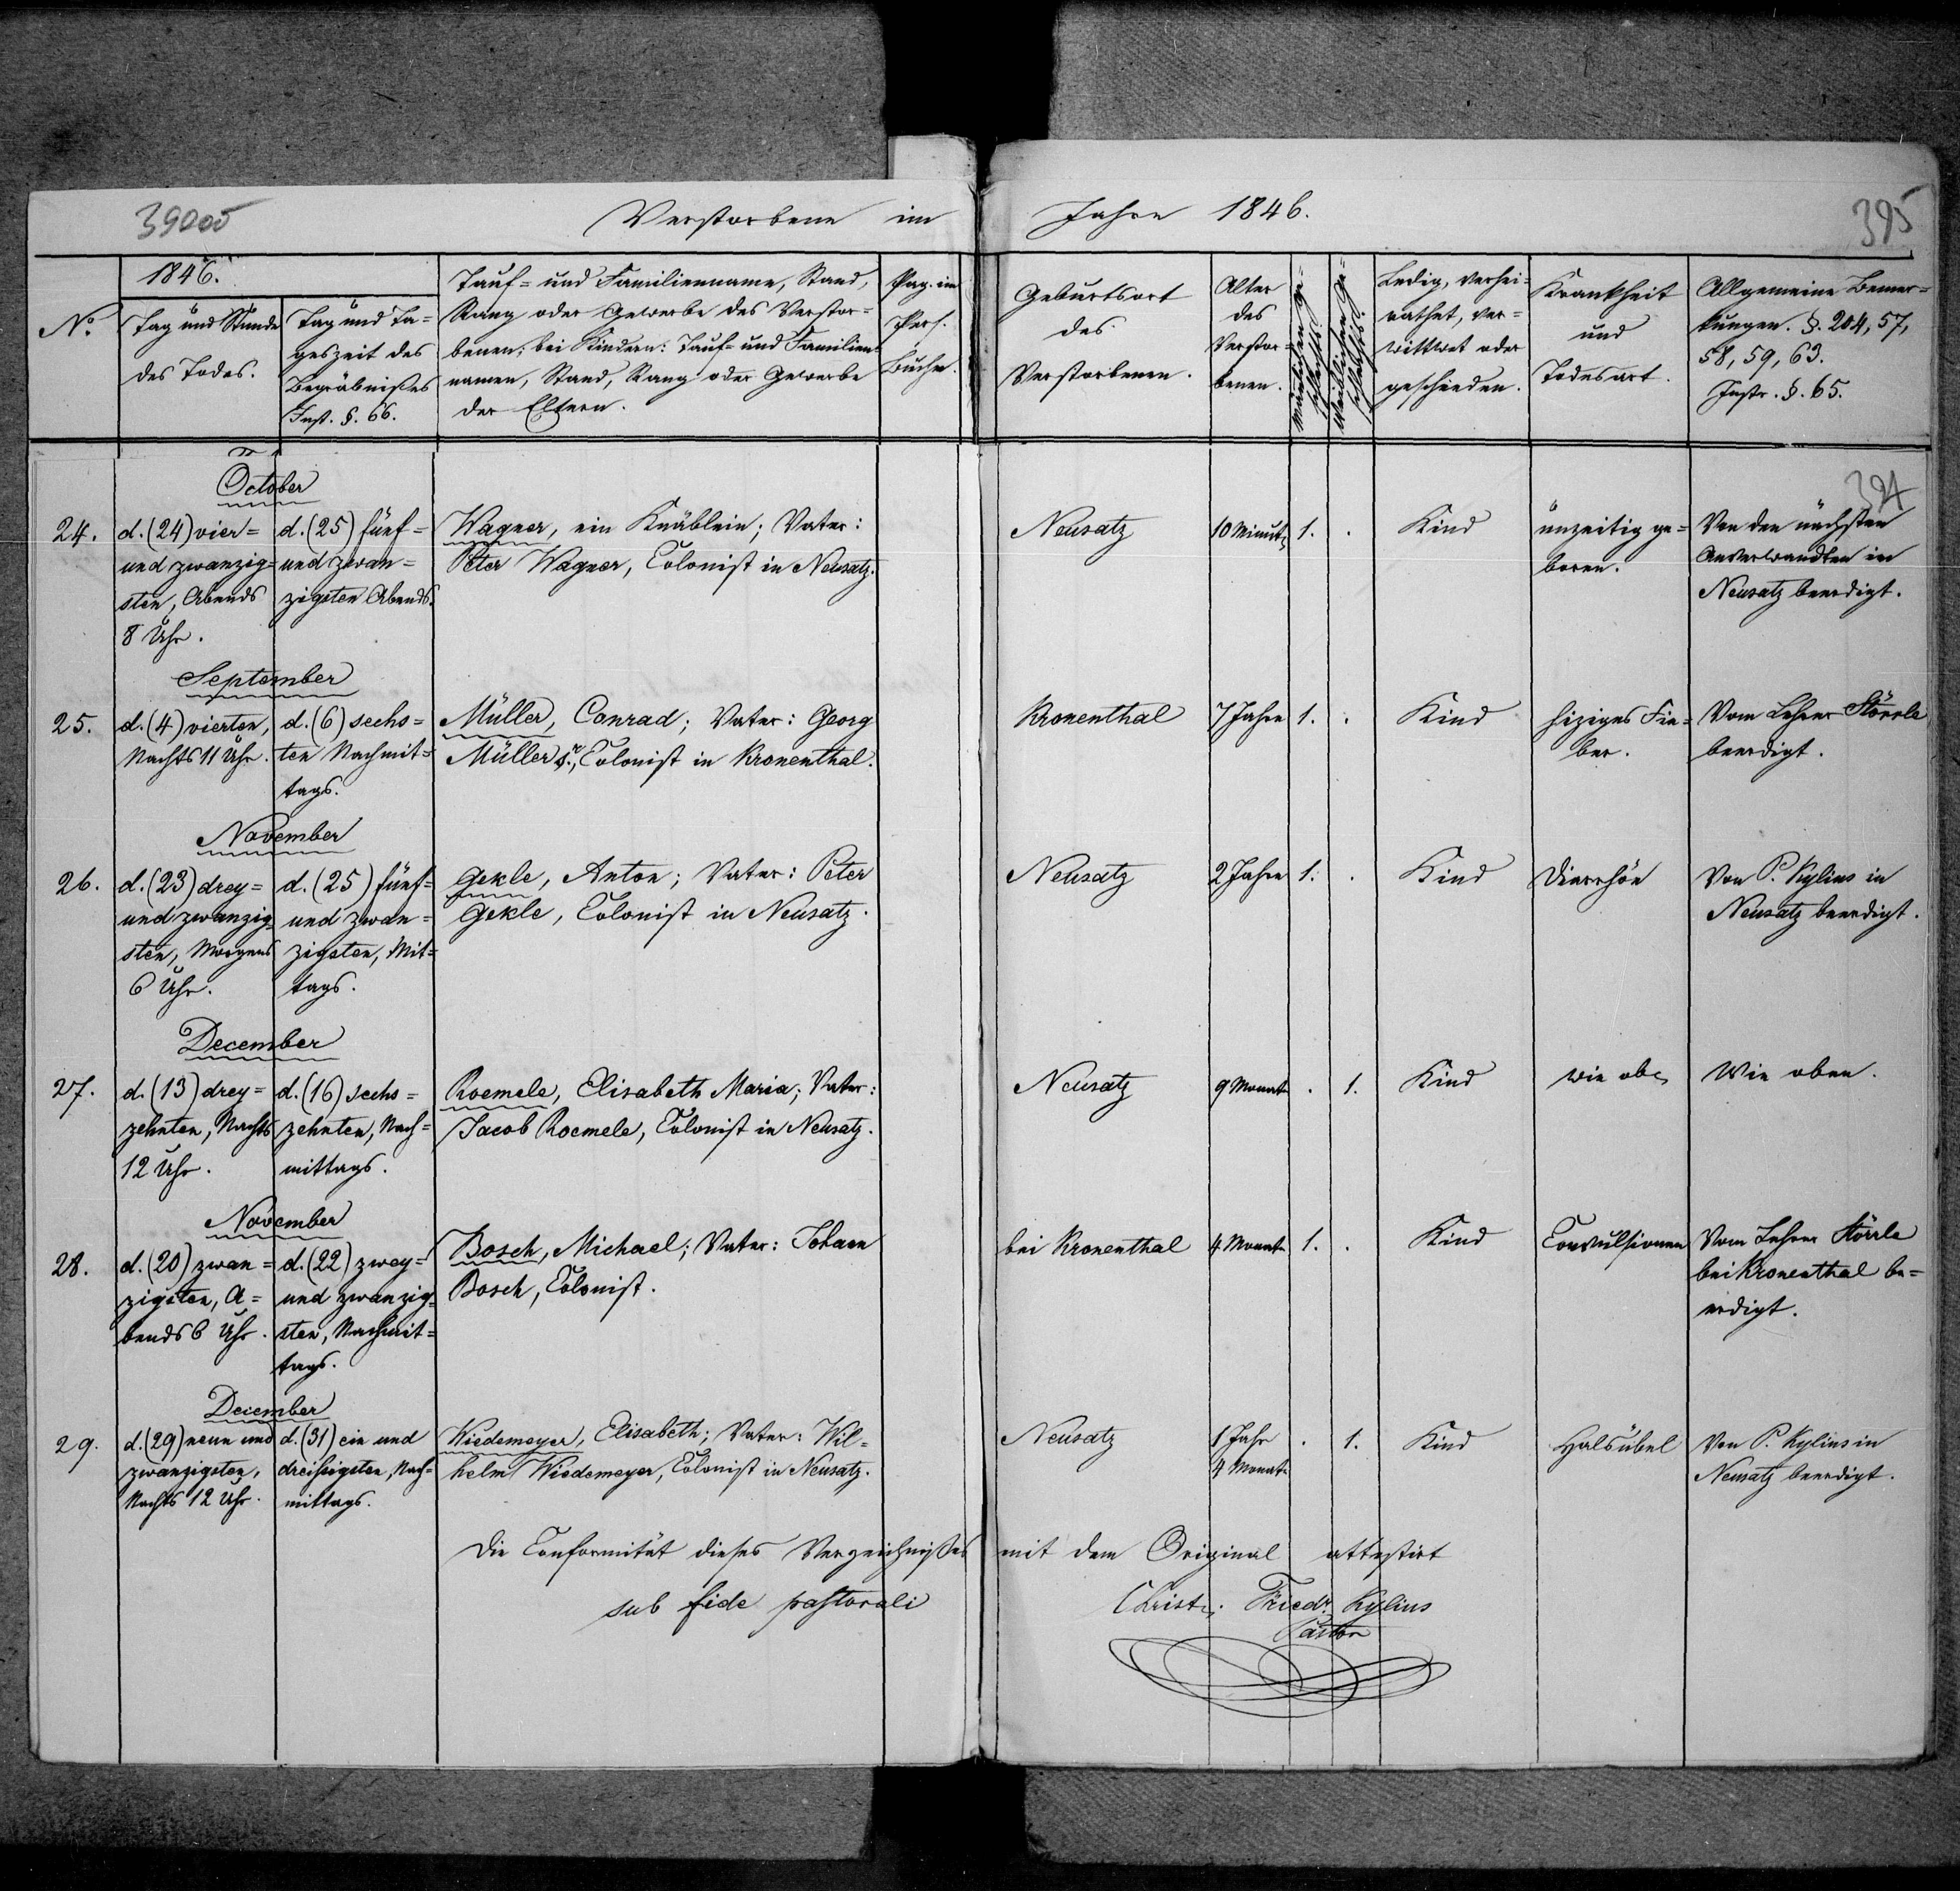 39005
Verstorbene im Jahre 1846.
395
No.
1846.
Tag und Stunde
des Todes.
Tag und Ta=
geszeit des
Begräbnißes
Inst. §. 66.
Tauf= und Familienname, Stand,
Rang oder Gewerbe des Verstor=
benen; bei Kindern: Tauf= und Familien
namen, Stand, Rang oder Gewerbe
der Eltern.
Pag. im
Pers.
Buche.
Geburtsort
des
Verstorbenen.
Alter
des
Verstor=
benen.
Männlichen Ge=
schlechts.
Weiblichen Ge=
schlechts.
Ledig, verhei=
rathet, ver=
wittwet oder
geschieden.
Krankheit
und
Todesart.
Allgemeine Bemer=
kungen. §. 204, 57,
58, 59, 63.
Instr. §. 65.
394
October
24.
d. (24) vier=
und zwanzig=
sten, Abends
8 Uhr.
d. (25) fünf=
und zwan=
zigsten Abends.
Wagner, ein Knäblein; Vater:
Peter Wagner, Colonist in Neusatz.
Neusatz
10 Minut.
1.
.
Kind
unzeitig ge=
boren.
Von den nächsten
Anverwandten in
Neusatz beerdigt.
September
25.
d. (4) vierten,
Nachts 11 Uhr.
d. (6) sechs=
ten Nachmit=
tags.
Müller, Conrad; Vater: Georg
Müller sr., Colonist in Kronenthal.
Kronenthal
7 Jahre
1.
.
Kind
hiziges Fie=
ber.
Vom Lehrer Störrle
beerdigt.
November
26.
d. (23) drey=
und zwanzig
sten, Morgens
6 Uhr.
d. (25) fünf=
und zwan=
zigsten, Mit=
tags.
Gekle, Anton; Vater: Peter
Gekle, Colonist in Neusatz.
Neusatz
2 Jahre
1.
.
Kind
Diarrhöe
Von P. Kylius in
Neusatz beerdigt.
December
27.
d. (13) drey=
zehnten, Nachts
12 Uhr.
d. (16) sechs=
zehnten, Nach=
mittags.
Roemele, Elisabeth Maria; Vater:
Jacob Roemele, Colonist in Neusatz.
Neusatz
9 Monate
.
1.
Kind
wie oben
Wie oben.
November
28.
d. (20) zwan=
zigsten, A=
bends 6 Uhr.
d. (22) zwey=
und zwanzig=
sten, Nachmit=
tags.
Bosch, Michael; Vater: Johann
Bosch, Colonist.
bei Kronenthal
4 Monate
1.
.
Kind
Convulsionen
Vom Lehrer Störrle
bei Kronenthal be=
erdigt.
December
29.
d. (29) neun und
zwanzigsten,
Nachts 12 Uhr.
d. (31) ein und
dreißigsten, Nach=
mittags.
Wiedemeyer, Elisabeth; Vater: Wil=
helm Wiedemeyer, Colonist in Neusatz.
Neusatz
1 Jahr
4 Monate
.
1.
Kind
Halsübel
Von P. Kylius in
Neusatz beerdigt.
Die Conformität dieses Verzeichnißes mit dem Original attestirt
sub fide pastorali
Christ. Friedr. Kylius
Pastor